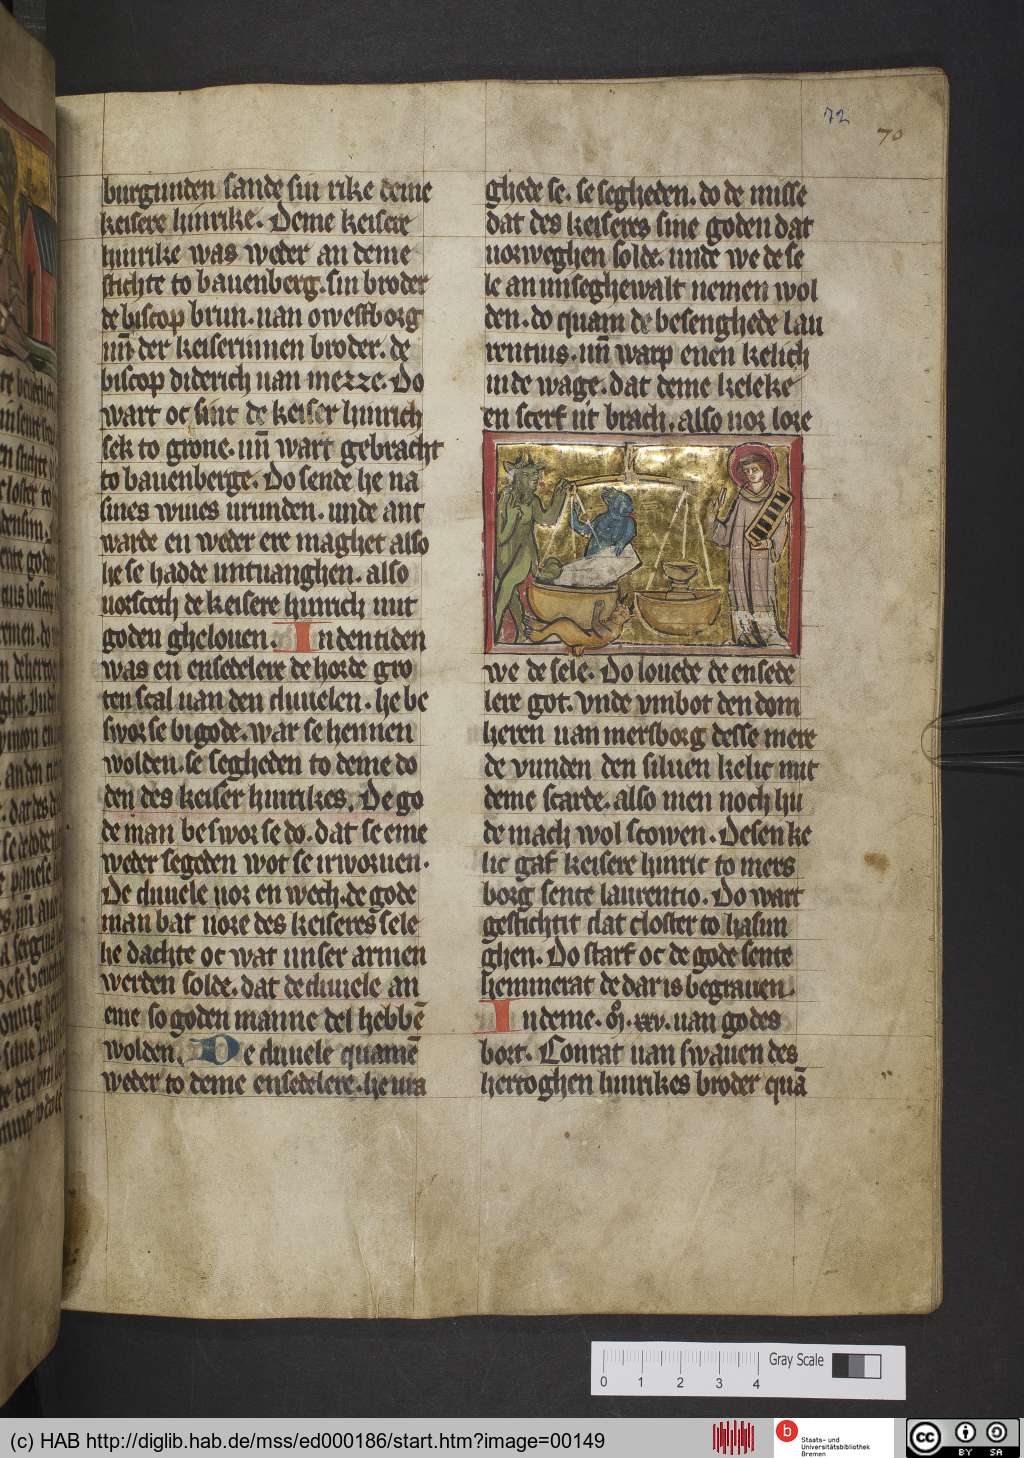 72
70
burgunden sande sin rike deme
keisere hinrike. Deme keisere
hinrike was weder an deme
stichte to bauenberg. sin broder
de biscop brun. uan owesborg
uñ der keiserinnen broder. de
biscop diderich uan mezze. Do
wart oc sint de keiser hinrich
sek to grone. uñ wart gebracht
to bauenberge. Do sende he na
sines wiues urunden. unde ant
warde en weder ere maghet also
he se hadde untuanghen. also
uorsceth de keisere hinrich mit
goden ghelouen. In den tiden
was en ensedelere de horde gro
ten scal uan den duuelen. he be
swor se bi gode. war se hennen
wolden. se segheden to deme do
den des keiser hinrikes. De go
de man beswor se do. dat se eme
weder segeden wot se irworuen.
De duuele uor en wech. de gode
man bat uore des keiseres sele
he dachte oc wat unser armen
werden solde. dat de duuele an
eme so goden manne del hebbē
wolden. De duuele quamē
weder to deme ensedelere. he ura
ghede se. se segheden. do de misse
dat des keiseres sine goden dat
uorweghen solde. unde we de se
le an unse ghewalt nemen wol
den. do quam de besenghede lau
rentius. uñ warp enen kelich
in de wage. dat deme keleke
en scerf ut brach. also uor lore
we de sele. Do louede de ensede
lere got. vnde vmbot den dom
heren uan mersborg desse mere
de vunden den siluen kelic mit
deme scarde. also men noch hu
de mach wol scowen. Desen ke
lic gaf keisere hinric to mers
borg sente laurentio. Do wart
gestichtit dat closter to hasun
ghen. Do starf oc de gode sente
hemmerat de dar is begrauen.
In deme. M. xxv. uan godes
bort. Conrat uan swauen des
hertoghen hinrikes broder quā
Gray Scale
0 1 2 3 4
(c) HAB http://diglib.hab.de/mss/ed000186/start.htm?image=00149
b
Staats- und
Universitätsbibliothek
Bremen
cc
BY SA